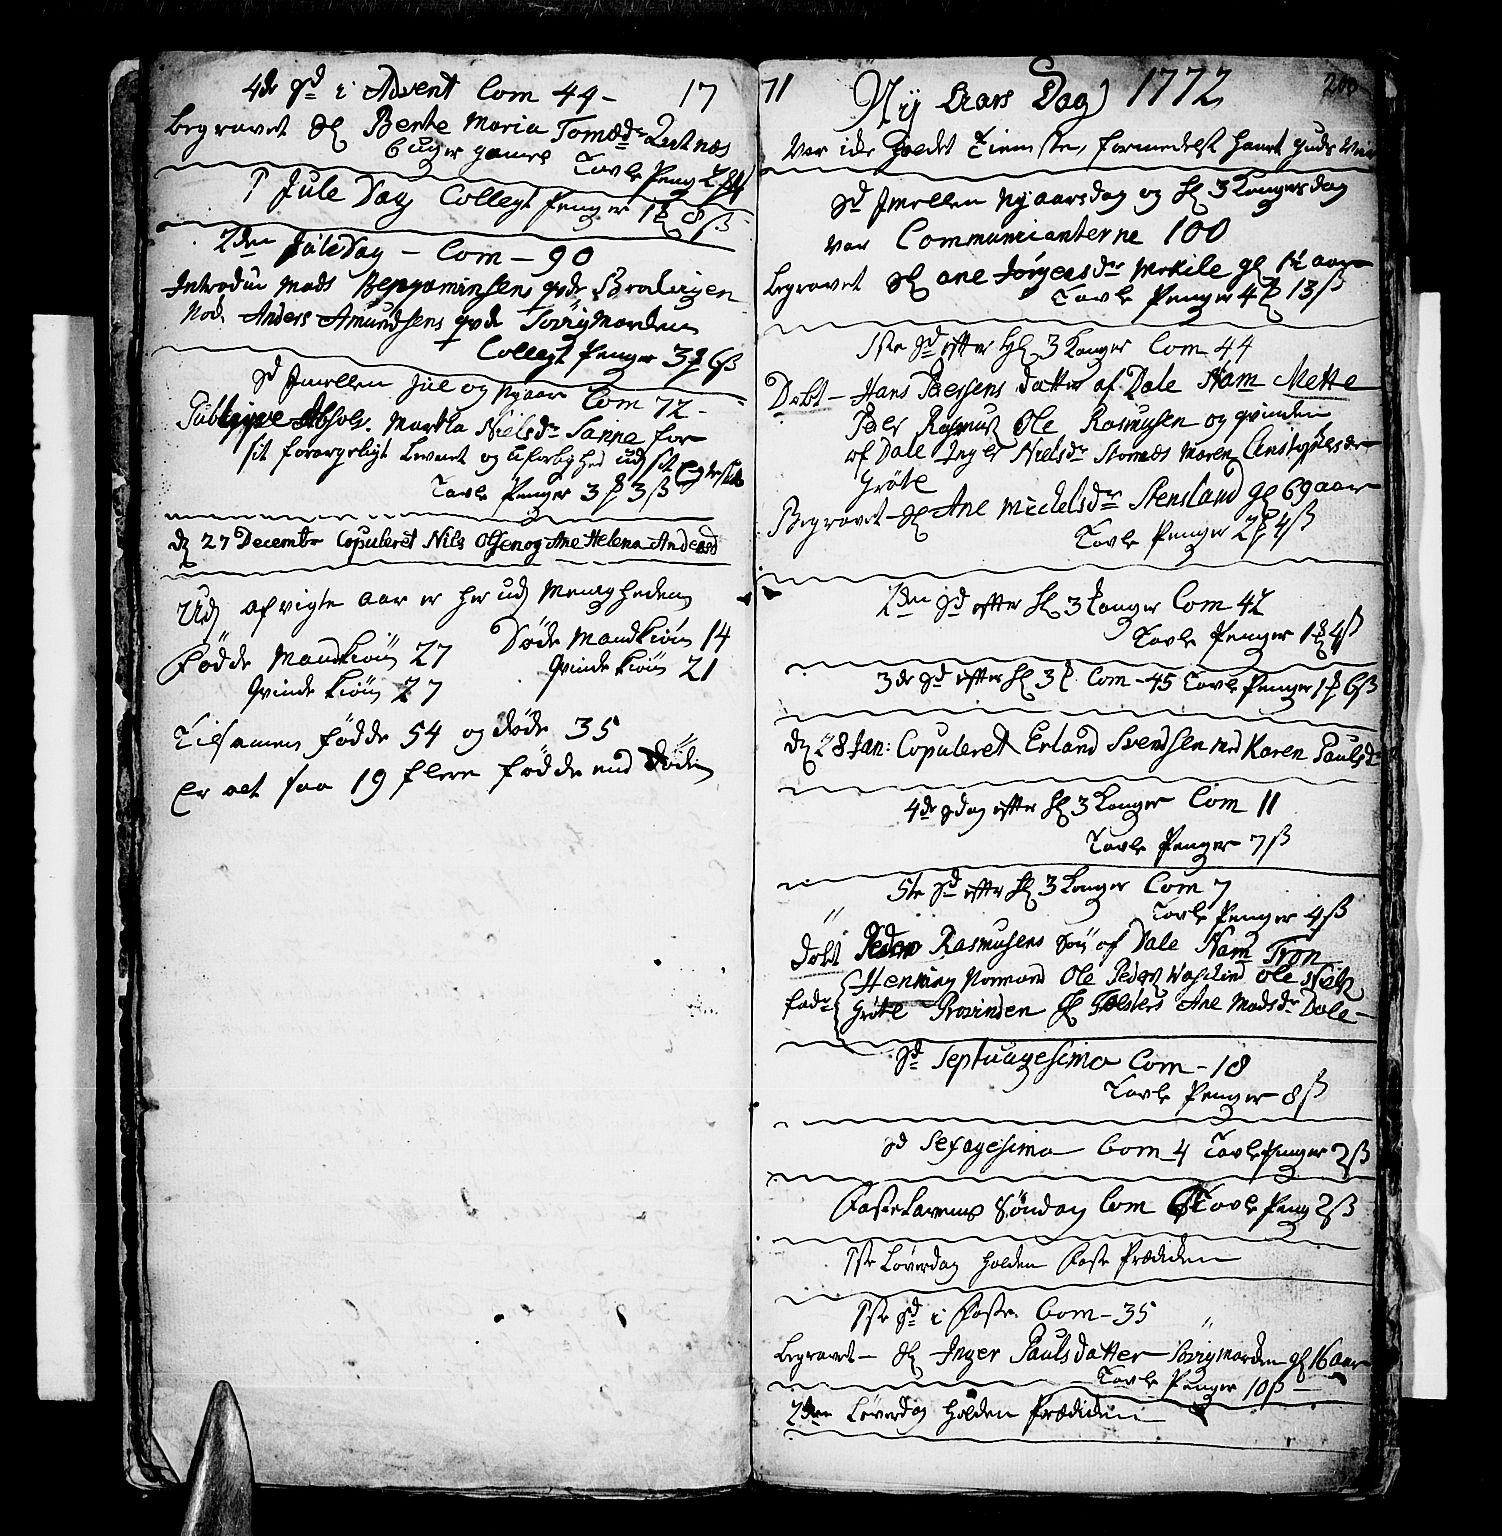 4de Sd i Advent Com 44 - 17
begravet Sl Bente Maria Tomæd:
6 uger gammel
Tavle Peng
1 Jule Dag Collegt Penger 1 8 ß
2den Juledag - Com - 90
Introdu: Mads Benjaminsens qvde
Nok Anders Amundsens qvde Sørigmarden
Collegt Penger 3 6ß
Sd Imellem Jul og Nyaar Com 72 -
Publiqve Absolv. Martha Nielsdr Sanne for
sit forargeligt Levnet og
Tavle Penger 3 3ß
d 27 Decembr Copuleret Nils Olsen og Ane Helena Andersd
Udj afvigte aar er her udj Menigheden
Fødde Mandkiøn 27 Døde Mandkiøn 14
Qvinde kiøn 27 Qvinde kiøn 21
Tilsamen fødde 54 og døde 35
Er alt saa 19 flere fødde end døde
71 Nÿ Aars Dag 1772 200
var icke holdet Tienste, formedelst haart
Sd Imellem Nyaarsdag og Hl 3 Kongers dag
var Communicanterne 100
begravet Sl Ane Jørgensdr gl 1½ aar
Tavle Penger 4 13ß
1ste Sd efter Hl 3 Konger Com 44
Døbt - Hans datter af Dale Nam Mette
Peder Rasmus Ole Rasmusen og qvinden
af Dale Inger Nielsdr Maren
Grøte
Begravet Sl Ane Michelsdr Stensland gl 69 aar
Tavle Penger 2 4ß
2den Sd efter Hl 3 Konger Com 42
Tavle Penger 1 4ß
3de Sd efter Hl 3 K. Com - 45 Tavle Penger 1 6ß
d 28 Jan: Copuleret Erland Svendsen med Karen Paulsdr
4de Sdag efter Hl 3 Konger Com 11
Tavle Penger 7ß
5te Sd efter Hl 3 Konger Com 7
Tavle Penger 4ß
Døbt Peder Rasmusens Søn af Dale Nam Tron
Henning Normand Ole Peders Ole Niels
fadr Grøte Qvinden Ane Madsdr Dale -
Sd Septuagesima Com - 18
Tavle Penger 8ß
Sd Sexagesima Com - 4 Tavle Penger 2ß
Fastelavens Søndag Com Tavle Peng 2ß
1ste Løverdag holden Faste Prædiken
1ste Sd i Faste Com - 35
begravet - Sl Inger Paulsdatter Sørigmarden gl 16 aar
Tavle Penger 10ß -
2den Løverdag holden Prædiken